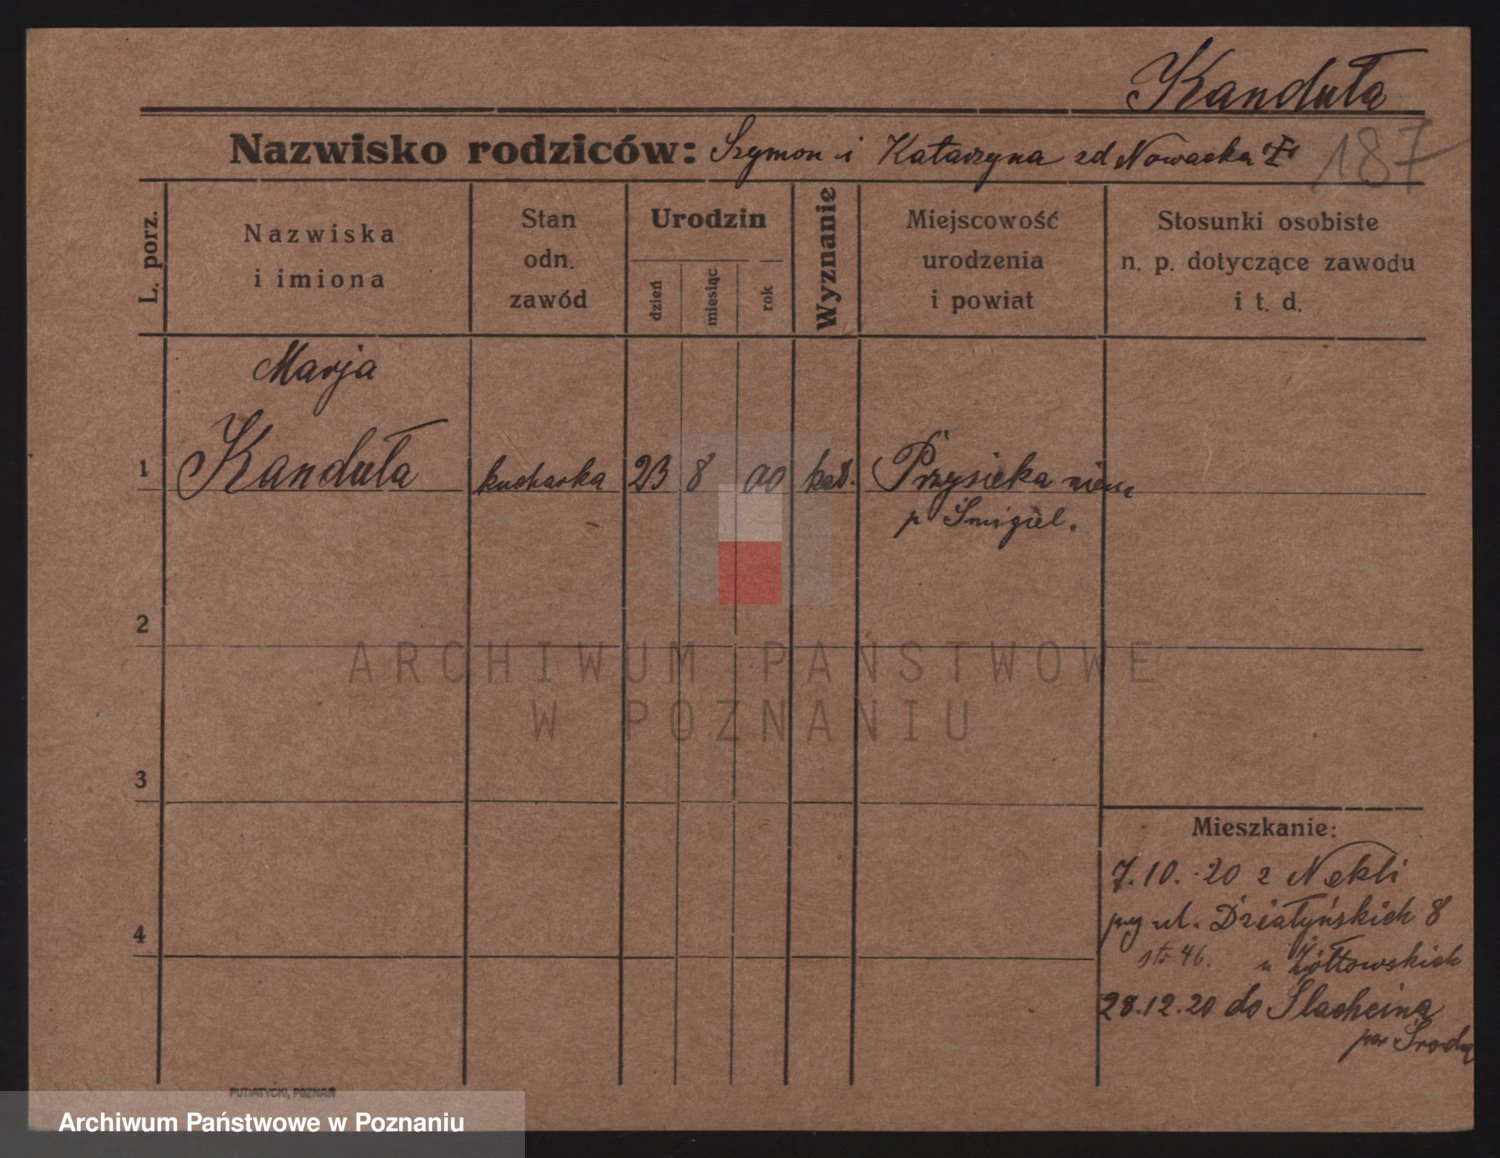 Kanduła
Nazwisko rodziców: Szymon i Katarzyna zd Nowacka
187
L. porz.
Nazwiska
i imiona
Stan
odn.
zawód
Urodzin
dzień
miesiąc
rok
Wyznanie
Miejscowość
urodzenia
i powiat
Stosunki osobiste
n. p. dotyczące zawodu
i t. d.
Marja
1 Kanduła kucharka 23 8 00 kat. Przysieka niem
p Śmigiel.
2
3
4
Mieszkanie:
7.10.-20 z Nekli
przy ul. Działyńskich 8
46. u Żółtowskich
28.12.20 do Slachcina
pow Środa
PUTIATYCKI, POZNAŃ
ARCHIWUM PAŃSTWOWE
W POZNANIU
Archiwum Państwowe w Poznaniu